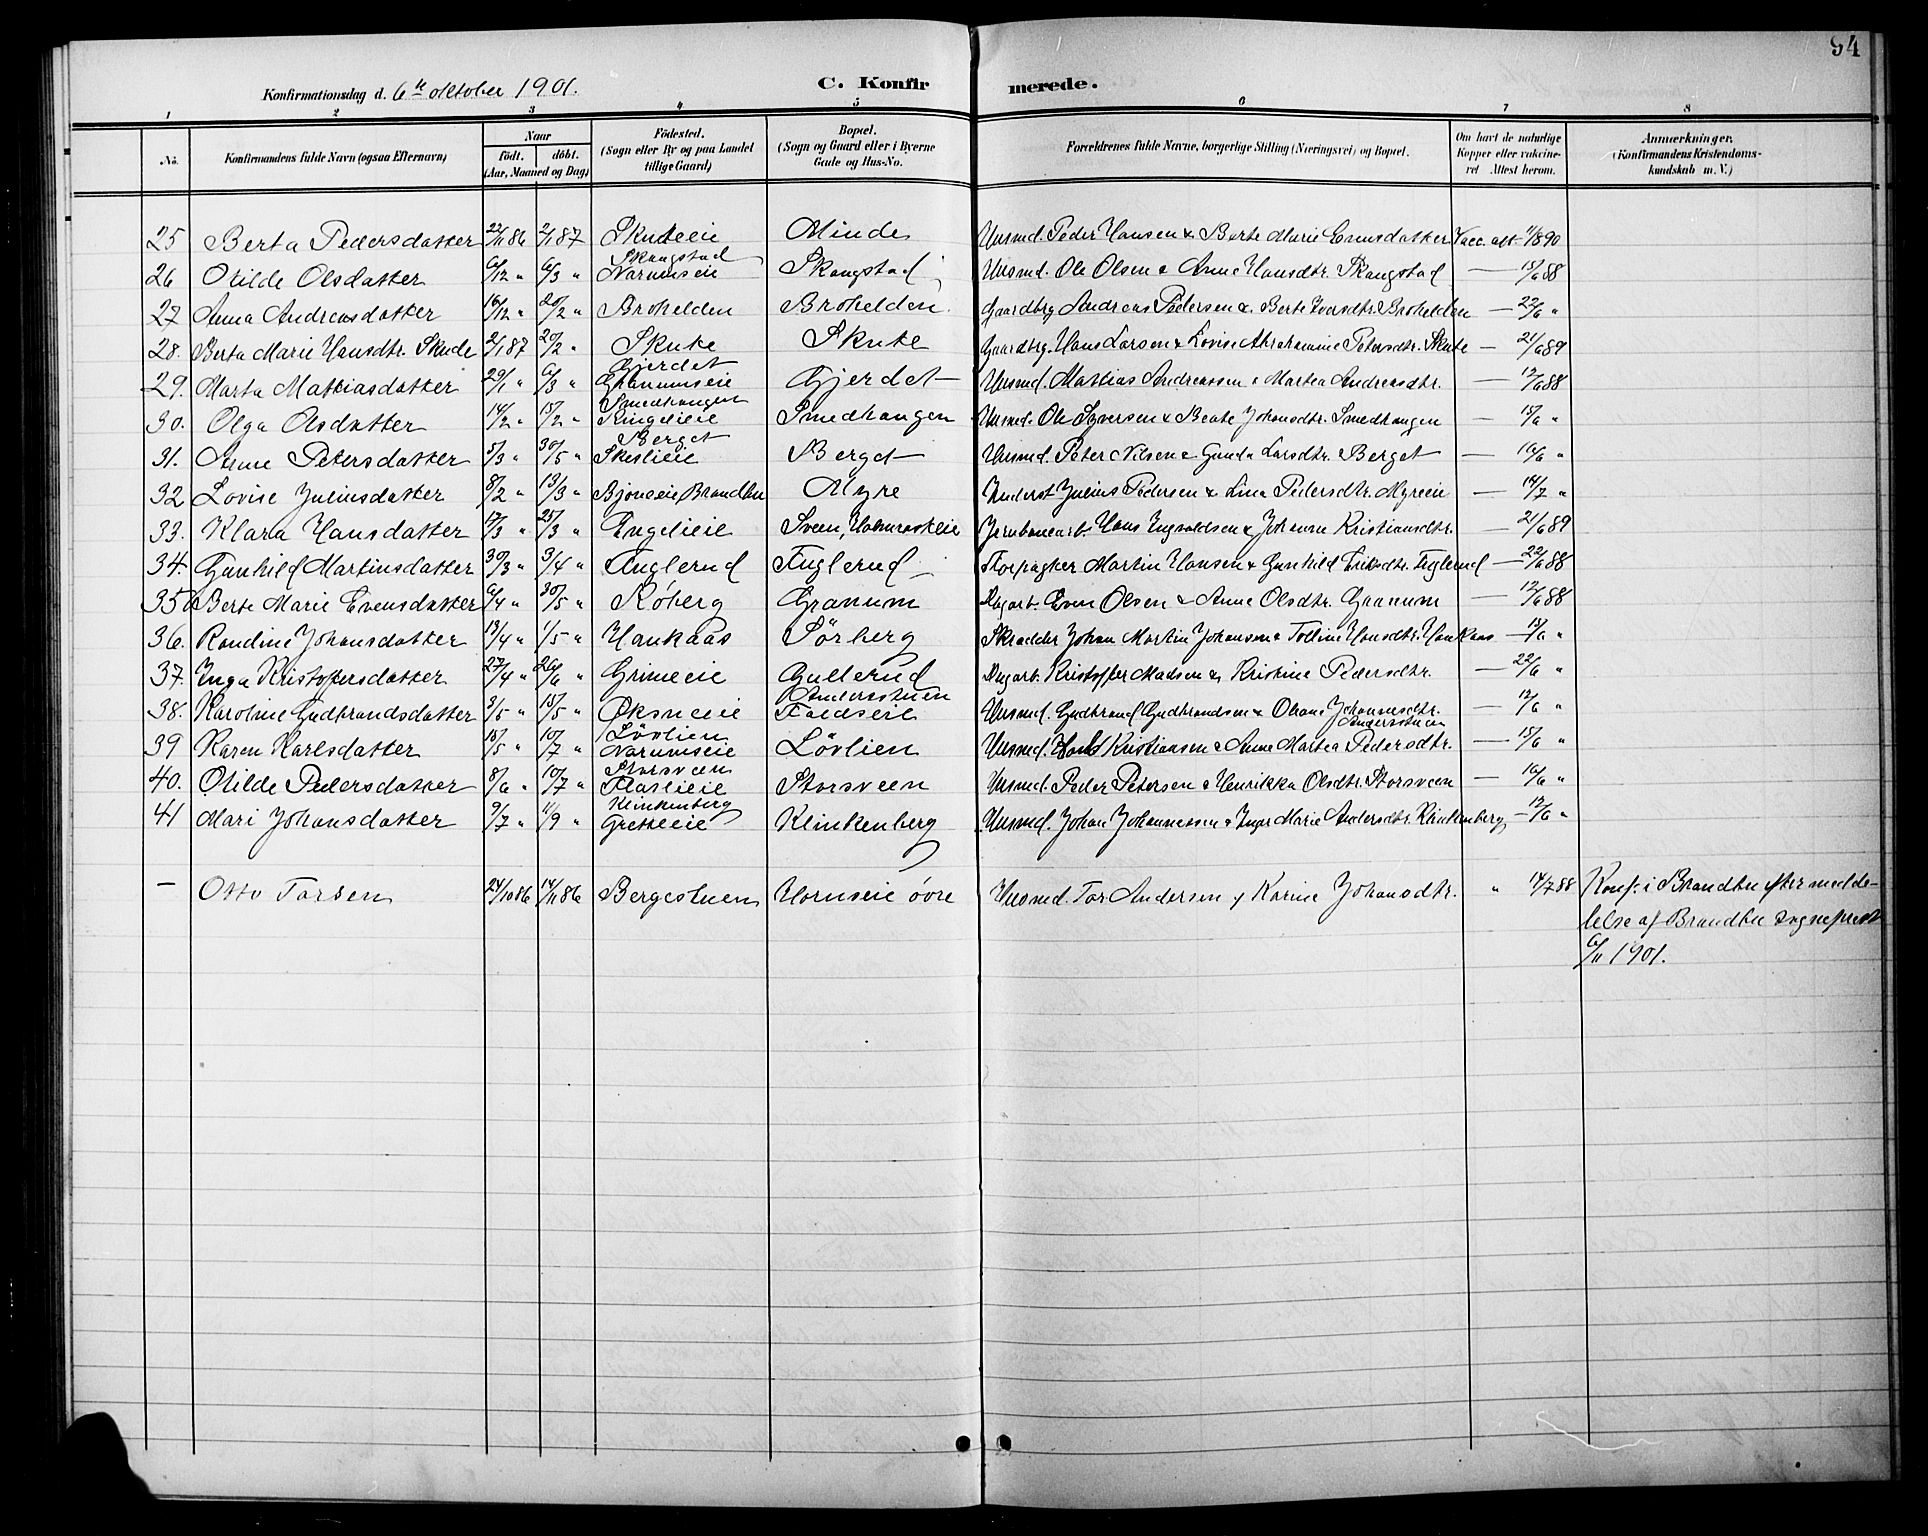 94
Konfirmationsdag d. 6te oktober 1901.
C. Konfirmerede.
1 2 3 4 5 6 7 8
No.
Konfirmandens fulde Navn (ogsaa Efternavn)
Naar
födt. döbt.
(Aar, Maaned og Dag)
Födested.
(Sogn eller By og paa Landet
tillige Gaard)
Bopæl.
(Sogn og Gaard eller i Byerne
Gade og Hus-No.
Forældrenes fulde Navne, borgerlige Stilling (Næringsvei) og Bopæl.
Om havt de naturlige
Kopper eller vakcine-
ret Attest herom.
Anmærkninger.
(Konfirmandens Kristendoms-
kundskab m. V.)
25 Berta Pedersdatter 22/11 86 2/1 87 Skuteeie Minde Husmd. Peder Hansen & Berte Marie Evensdatter Vacc. att. 11/8 90
26 Otilde Olsdatter 6/12 " 6/3 " Skangstad Narumseie Skangstad Husmd. Ole Olsen & Anne Hansdtr. Skangstad — 15/6 88
27 Anna Andreasdatter 16/12 " 20/2 " Brohelden Brohelden Gaardbrg Andreas Pedersen & Berte Iversdtr. Brohelden — 22/6 "
28. Berta Marie Hansdtr. Skute 2/1 87 20/2 " Skute Skute Gaardbrg. Hans Larsen & Lovise Abrahamine Petersdtr. Skute — 21/6 89
29. Marta Mattiasdatter 29/1 " 6/3 " Gjerdet Granumseie Gjerdet Husmd. Mattias Andreassen & Martea Andreasdtr. — 12/6 88
30. Olga Olsdatter 14/2 " 15/2 " Smedhaugen Ringelieie Smedhaugen Husmd. Ole Syversen & Beate Johansdtr. Smedhaugen — 15/6 "
31. Anne Petersdatter 5/3 " 30/5 " Berget Skeslieie Berget Husmd. Peter Nilsen & Gunda Larsdtr. Berget — 16/6 "
32 Lovise Juliusdatter 8/2 " 13/3 " Bjoneeie, Brandbu Myre Inderst Julius Pedersen & Lina Pedersdtr. Myreeie — 14/7 "
33. Klara Hansdatter 17/3 " 25/3 " Engelieie Sveen, Jernbanearb. Hans Ingvaldsen & Johanne Kristiansdtr. — 21/6 89
34. Gunhild Martinsdatter 30/3 " 3/4 " Fuglerud Fuglerud Martin Hansen & Gunhild Eriksdtr. Fuglerud — 22/6 88
35 Berte Marie Evensdatter 6/4 " 30/5 " Röberg Granum Dagarb. Even Olsen & Anne Olsdtr. Granum — 12/6 88
36. Randine Johansdatter 13/4 " 1/5 " Haukaas Sörberg Skrædder Johan Martin Johansen & Tolline Hansdtr. Haukaas — 15/6 "
37. Inga Kristoffersdatter 27/4 " 26/6 " Grimeeie Gullerud Dagarb. Kristoffer Madsen & Kristine Pedersdtr. — 22/6 "
38. Karoline Gudbrandsdatter 3/5 " 15/5 " Øksneeie Andersstuen Faldseie Husmd. Gudbrand Gudbrandsen & Oliane Johannesdtr. Andersstuen — 12/6 "
39 Karen Karlsdatter 18/5 " 10/7 " Lövlien Narumseie Lövlien Husmd. Karl Kristiansen & Anne Martea Pedersdtr. — 15/6 "
40. Otilde Pedersdatter 8/6 " 10/7 " Storsveen Flaslieie Storsveen Husmd. Peder Petersen & Henrikka Olsdtr. Storsveen — 16/6 "
41 Mari Johansdatter 9/7 " 11/9 " Klinkenberg Gretteeie Klinkenberg Husmd. Johan Johannessen & Inger Marie Andersdtr. Klinkenberg — 12/6 "
— Otto Torsen 24/10 86 14/11 86 Bergestuen Hornseie övre Husmd. Tor Andersen & Karine Johansdtr. " 14/7 88 Konf. i Brandbu efter medde-
lelse af Brandbu sogneprest
6/11 1901.